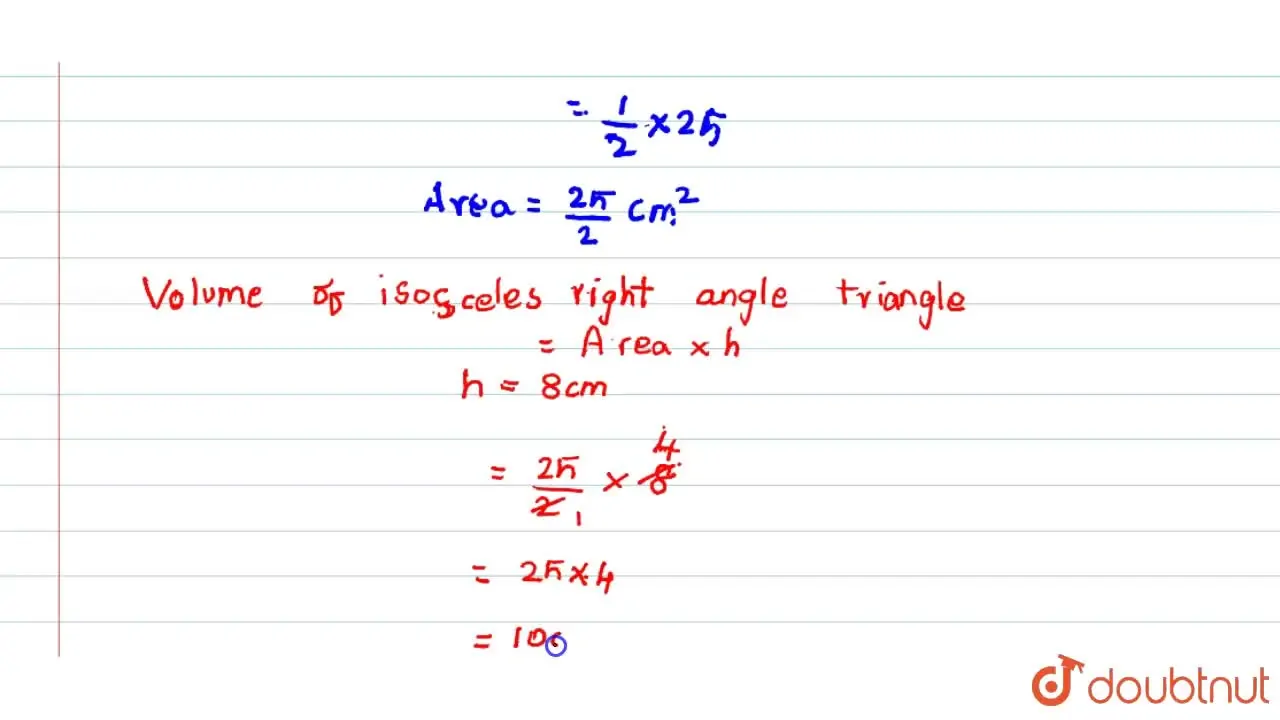 = 1/2 × 25
Area = 25/2 cm²
Volume of isosceles right angle triangle
= Area × h
h = 8cm
= 25/2 1 × 8 4
= 25 × 4
= 100
doubtnut